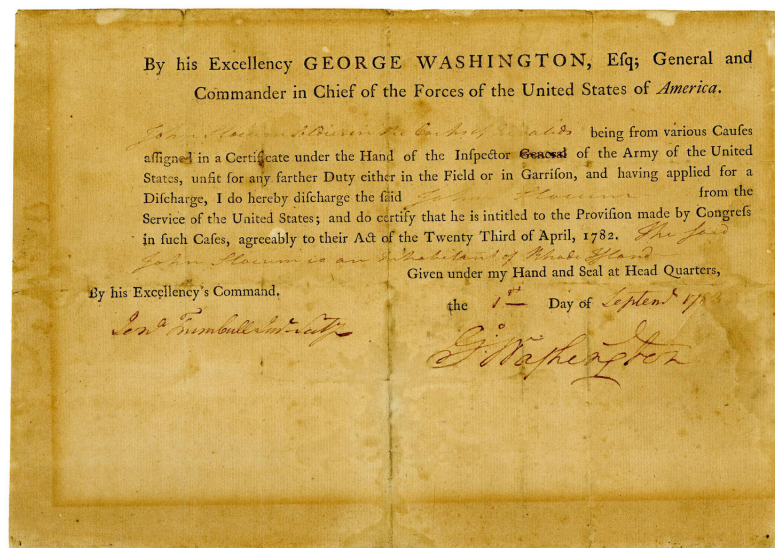 By his Excellency GEORGE WASHINGTON, Eſq; General and
Commander in Chief of the Forces of the United States of America.
John Slocum Soldier in the Corps of Invalids being from various Cauſes
aſſigned in a Certificate under the Hand of the Inſpector General of the Army of the United
States, unfit for any farther Duty either in the Field or in Garriſon, and having applied for a
Diſcharge, I do hereby diſcharge the ſaid John Slocum from the
Service of the United States; and do certify that he is intitled to the Proviſion made by Congreſs
in ſuch Caſes, agreeably to their Act of the Twenty Third of April, 1782. The said
John Slocum is an Inhabitant of Rhode Island
Given under my Hand and Seal at Head Quarters,
By his Excellency's Command.
the 1st Day of Septemr 178
Jona Trumbull Junr Secty
Go Washington